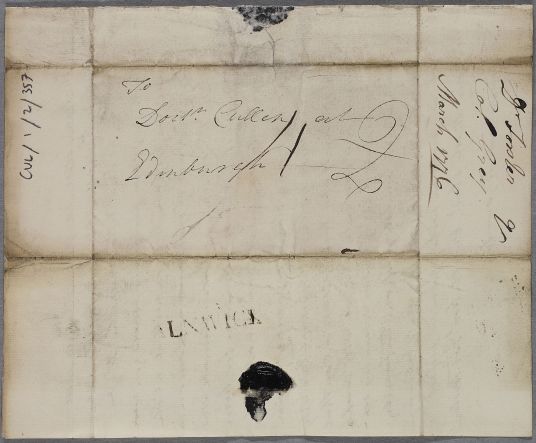 To
Doctr. Cullen at
Edinburgh
Dr Fowler
Col. Grey
March 1776
CUL/1/2/357
ALNWICK